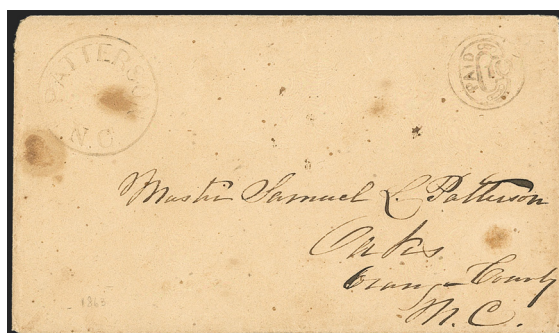 PATTERSON
N.C.
PAID
10
Master Samuel L. Patterson
Oaks
Orange County
N.C.
1863